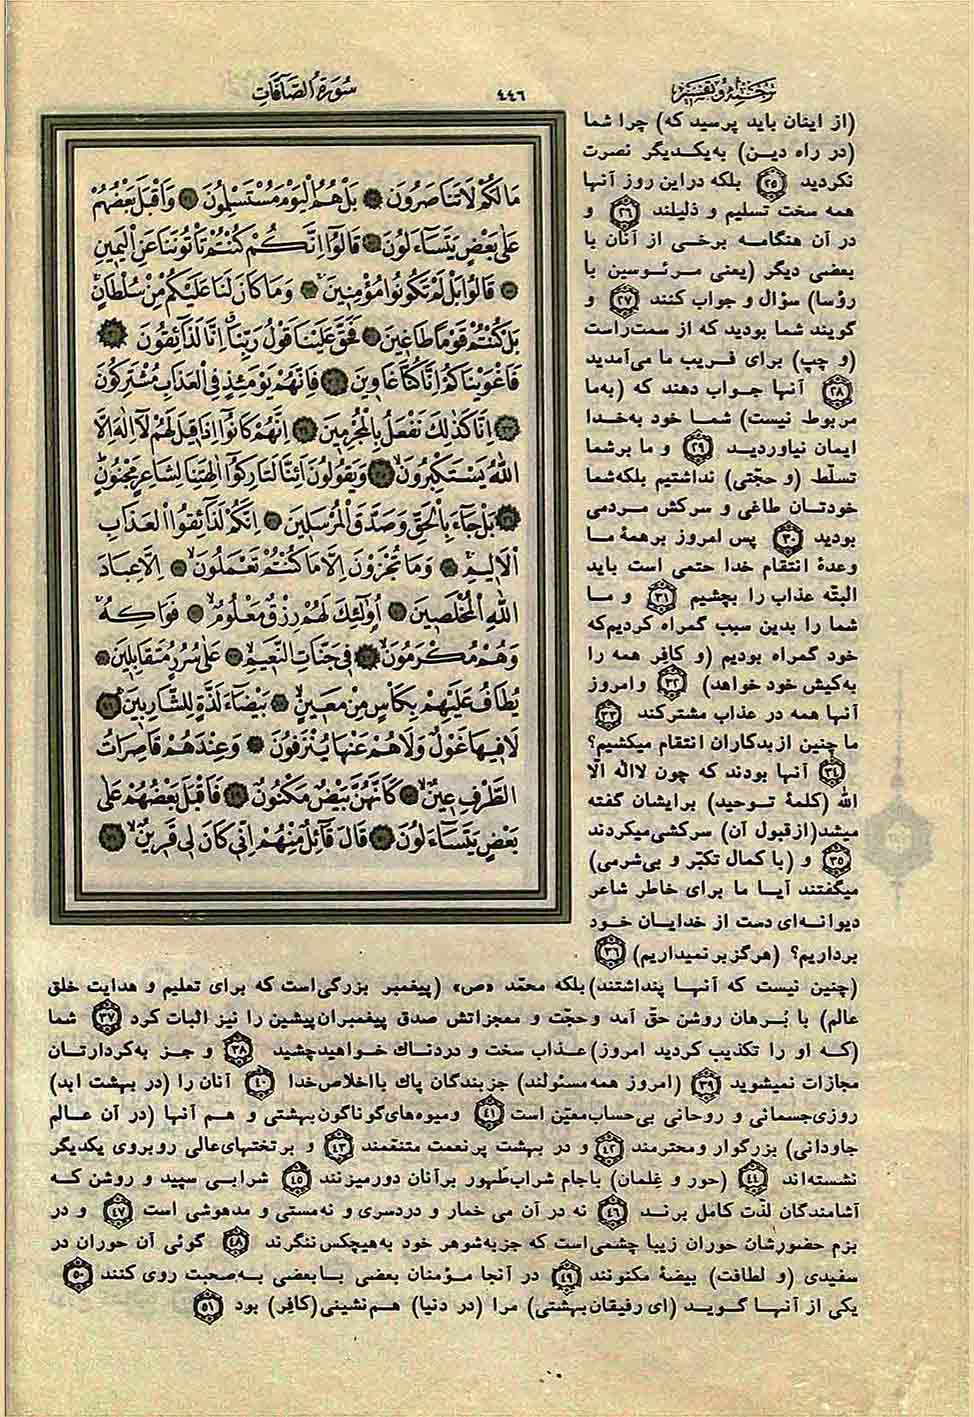 ترجمه و تفسیر
٤٤٦
سُورَةُ الصَّآفَّاتِ
مَا لَكُمْ لَا تَنَاصَرُونَ بَلْ هُمُ الْيَوْمَ مُسْتَسْلِمُونَ وَاَقْبَلَ بَعْضُهُمْ
عَلٰى بَعْضٍ يَتَسَآءَلُونَ قَالُوٓا اِنَّكُمْ كُنْتُمْ تَاْتُونَنَا عَنِ الْيَمِينِ
قَالُوا بَلْ لَمْ تَكُونُوا مُؤْمِنِينَ وَمَا كَانَ لَنَا عَلَيْكُمْ مِنْ سُلْطَانٍ
بَلْ كُنْتُمْ قَوْمًا طَاغِينَ فَحَقَّ عَلَيْنَا قَوْلُ رَبِّنَا اِنَّا لَذَآئِقُونَ
فَاَغْوَيْنَاكُمْ اِنَّا كُنَّا غَاوِينَ فَاِنَّهُمْ يَوْمَئِذٍ فِي الْعَذَابِ مُشْتَرِكُونَ
اِنَّا كَذٰلِكَ نَفْعَلُ بِالْمُجْرِمِينَ اِنَّهُمْ كَانُوٓا اِذَا قِيلَ لَهُمْ لَآ اِلٰهَ اِلَّا
اللهُ يَسْتَكْبِرُونَ وَيَقُولُونَ اَئِنَّا لَتَارِكُوٓا اٰلِهَتِنَا لِشَاعِرٍ مَجْنُونٍ
بَلْ جَآءَ بِالْحَقِّ وَصَدَّقَ الْمُرْسَلِينَ اِنَّكُمْ لَذَآئِقُوا الْعَذَابِ
الْاَلِيمِ وَمَا تُجْزَوْنَ اِلَّا مَا كُنْتُمْ تَعْمَلُونَ اِلَّا عِبَادَ
اللهِ الْمُخْلَصِينَ اُولٰٓئِكَ لَهُمْ رِزْقٌ مَعْلُومٌ فَوَاكِهُ
وَهُمْ مُكْرَمُونَ فِي جَنَّاتِ النَّعِيمِ عَلٰى سُرُرٍ مُتَقَابِلِينَ
يُطَافُ عَلَيْهِمْ بِكَاْسٍ مِنْ مَعِينٍ بَيْضَآءَ لَذَّةٍ لِلشَّارِبِينَ
لَا فِيهَا غَوْلٌ وَلَا هُمْ عَنْهَا يُنْزَفُونَ وَعِنْدَهُمْ قَاصِرَاتُ
الطَّرْفِ عِينٌ كَاَنَّهُنَّ بَيْضٌ مَكْنُونٌ فَاَقْبَلَ بَعْضُهُمْ عَلٰى
بَعْضٍ يَتَسَآءَلُونَ قَالَ قَآئِلٌ مِنْهُمْ اِنِّي كَانَ لِي قَرِينٌ
(از اینان باید پرسید که) چرا شما
(در راه دین) به‌یکدیگر نصرت
نکردید ٢٥ بلکه در این روز آنها
همه سخت تسلیم و ذلیلند ٢٦ و
در آن هنگامه برخی از آنان با
بعضی دیگر (یعنی مرئوسین با
رؤسا) سؤال و جواب کنند ٢٧ و
گویند شما بودید که از سمت راست
(و چپ) برای فریب ما می‌آمدید
٢٨ آنها جواب دهند که (به‌ما
مربوط نیست) شما خود به‌خدا
ایمان نیاوردید ٢٩ و ما برشما
تسلّط (و حجّتی) نداشتیم بلکه‌شما
خودتان طاغی و سرکش مردمی
بودید ٣٠ پس امروز برهمهٔ ما
وعدهٔ انتقام خدا حتمی است باید
البتّه عذاب را بچشیم ٣١ و ما
شما را بدین سبب گمراه کردیم‌که
خود گمراه بودیم (و کافر همه را
به‌کیش خود خواهد) ٣٢ و امروز
آنها همه در عذاب مشترکند ٣٣
ما چنین از بدکاران انتقام میکشیم؟
٣٤ آنها بودند که چون لااله الّا
الله (کلمهٔ توحید) برایشان گفته
میشد (از قبول آن) سرکشی میکردند
٣٥ و (با کمال تکبّر و بی‌شرمی)
میگفتند آیا ما برای خاطر شاعر
دیوانه‌ای دست از خدایان خود
برداریم؟ (هرگز برنمیداریم) ٣٦
(چنین نیست که آنها پنداشتند) بلکه محمّد «ص» (پیغمبر بزرگی‌است که برای تعلیم و هدایت خلق
عالم) با بُرهان روشن حقّ آمد و حجّت و معجزاتش صدق پیغمبران‌پیشین را نیز اثبات کرد ٣٧ شما
(که او را تکذیب کردید امروز) عذاب سخت و دردناك خواهید چشید ٣٨ و جز به‌کردارتان
مجازات نمیشوید ٣٩ (امروز همه مسئولند) جز بندگان پاك بااخلاص‌خدا ٤٠ آنان را (در بهشت ابد)
روزی‌جسمانی و روحانی بی‌حساب معیّن است ٤١ و میوه‌های گوناگون‌بهشتی و هم آنها (در آن عالم
جاودانی) بزرگوار و محترمند ٤٢ و در بهشت پرنعمت متنعّمند ٤٣ و برتختهای‌عالی روبروی یکدیگر
نشسته‌اند ٤٤ (حور و غِلمان) باجام شراب طهور برآنان دورمیزنند ٤٥ شرابی سپید و روشن که
آشامندگان لذّت کامل برند ٤٦ نه در آن می خمار و دردسری و نه‌مستی و مدهوشی است ٤٧ و در
بزم حضورشان حوران زیبا چشمی‌است که جزبه‌شوهر خود به‌هیچکس ننگرند ٤٨ گوئی آن حوران در
سفیدی (و لطافت) بیضهٔ مکنونند ٤٩ در آنجا مؤمنان بعضی با بعضی به‌صحبت روی کنند ٥٠
یکی از آنها گوید (ای رفیقان‌بهشتی) مرا (در دنیا) هم‌نشینی (کافِر) بود ٥١